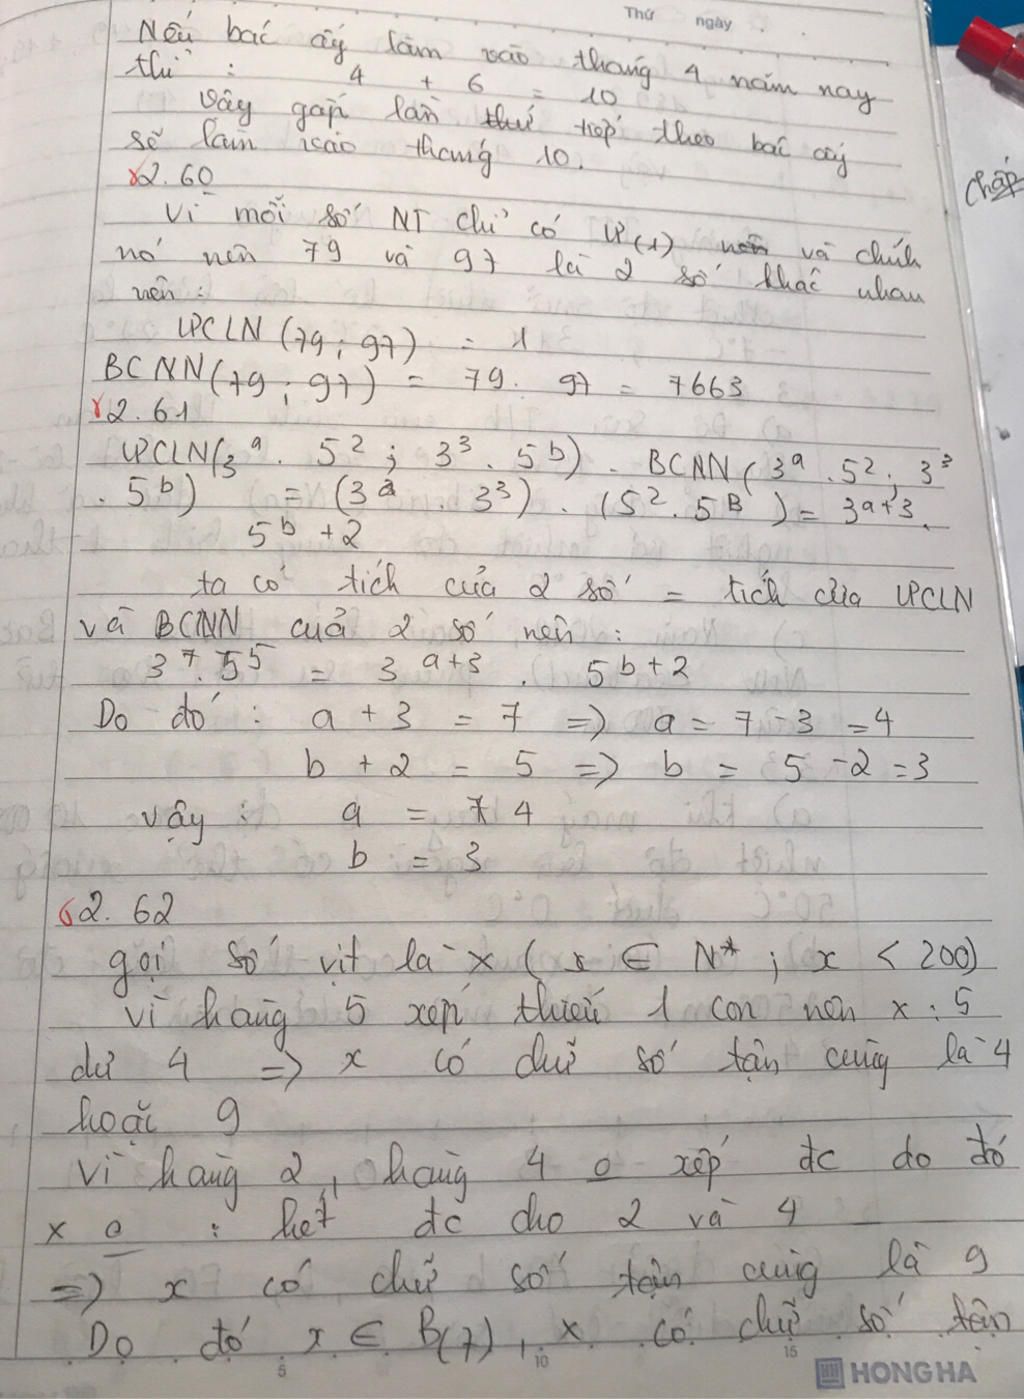 Thứ ngày
Nếu bác ấy làm vào tháng 4 năm nay
thì : 4 + 6 = 10
Vậy gần lần thứ tiếp theo bác ấy
sẽ làm vào tháng 10.
2.60
Vì mỗi số NT chỉ có Ư(1) và chính
nó nên 79 và 97 là 2 số khác nhau
nên :
ƯCLN (79 ; 97) = 1
BCNN (79 ; 97) = 79 . 97 = 7663
2.61
ƯCLN(3ᵃ . 5² ; 3³ . 5ᵇ) . BCNN (3ᵃ . 5² ; 3³
. 5ᵇ) = (3ᵃ . 3³) . (5² . 5ᴮ) = 3ᵃ⁺³ .
5ᵇ⁺²
ta có tích của 2 số = tích của ƯCLN
và BCNN của 2 số nên :
3⁷ . 5⁵ = 3ᵃ⁺³ . 5ᵇ⁺²
Do đó : a + 3 = 7 => a = 7 - 3 = 4
b + 2 = 5 => b = 5 - 2 = 3
Vậy : a = 4
b = 3
2.62
gọi số vịt là x ( x ∈ N* ; x < 200)
Vì hàng 5 xếp thiếu 1 con nên x : 5
dư 4 => x có chữ số tận cùng là 4
hoặc 9
Vì hàng 2, hàng 4 o xếp đc do đó
x o : hết đc cho 2 và 4
=> x có chữ số tận cùng là 9
Do đó x ∈ B(7) , x có chữ số tận
5 10 15
HONG HA
chấp